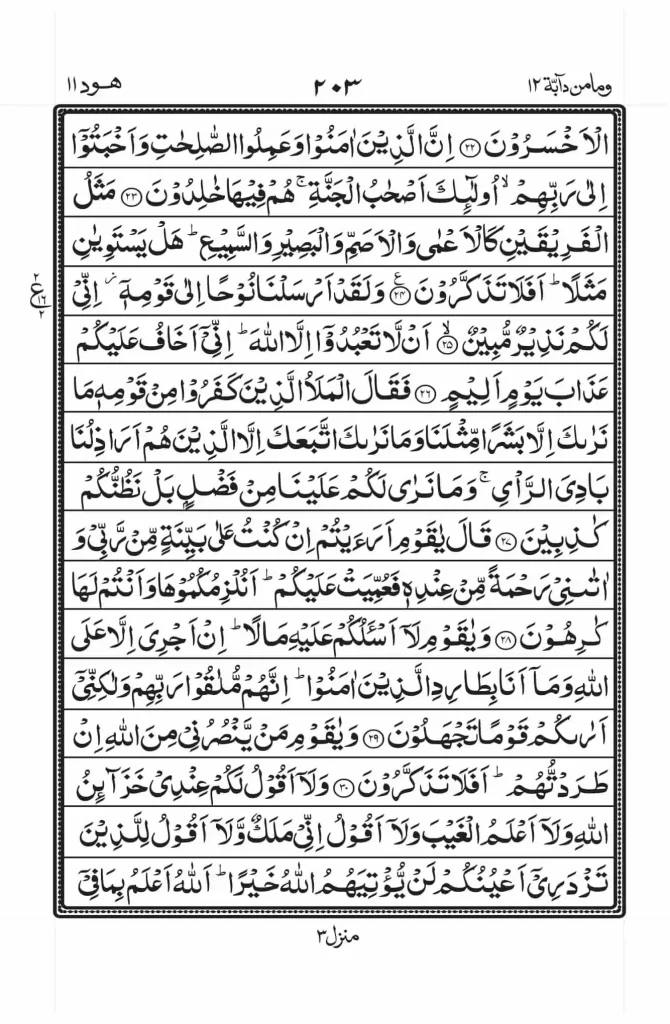 ومامن دآبۃ ۱۲ ۲۰۳ ھود ۱۱
الۡاَخۡسَرُوۡنَ ﴿۲۲﴾ اِنَّ الَّذِيۡنَ اٰمَنُوۡا وَعَمِلُوا الصّٰلِحٰتِ وَاَخۡبَتُوۡۤا
اِلٰى رَبِّهِمۡۙ اُولٰٓٮِٕكَ اَصۡحٰبُ الۡجَنَّةِۚ هُمۡ فِيۡهَا خٰلِدُوۡنَ ﴿۲۳﴾ مَثَلُ
الۡفَرِيۡقَيۡنِ كَالۡاَعۡمٰى وَالۡاَصَمِّ وَالۡبَصِيۡرِ وَالسَّمِيۡعِؕ هَلۡ يَسۡتَوِيٰنِ
مَثَلًاؕ اَفَلَا تَذَكَّرُوۡنَ ﴿۲۴﴾ وَلَقَدۡ اَرۡسَلۡنَا نُوۡحًا اِلٰى قَوۡمِهٖۤ اِنِّىۡ
۲ ع ۱۲ ۲
لَـكُمۡ نَذِيۡرٌ مُّبِيۡنٌۙ ﴿۲۵﴾ اَنۡ لَّا تَعۡبُدُوۡۤا اِلَّا اللّٰهَؕ اِنِّىۡۤ اَخَافُ عَلَيۡكُمۡ
عَذَابَ يَوۡمٍ اَلِيۡمٍ ﴿۲۶﴾ فَقَالَ الۡمَلَاُ الَّذِيۡنَ كَفَرُوۡا مِنۡ قَوۡمِهٖ مَا
نَرٰٮكَ اِلَّا بَشَرًا مِّثۡلَنَا وَمَا نَرٰٮكَ اتَّبَعَكَ اِلَّا الَّذِيۡنَ هُمۡ اَرَاذِلُنَا
بَادِىَ الرَّاۡىِۚ وَمَا نَرٰى لَـكُمۡ عَلَيۡنَا مِنۡ فَضۡلٍۢ بَلۡ نَظُنُّكُمۡ
كٰذِبِيۡنَ ﴿۲۷﴾ قَالَ يٰقَوۡمِ اَرَءَيۡتُمۡ اِنۡ كُنۡتُ عَلٰى بَيِّنَةٍ مِّنۡ رَّبِّىۡ وَ
اٰتٰٮنِىۡ رَحۡمَةً مِّنۡ عِنۡدِهٖ فَعُمِّيَتۡ عَلَيۡكُمۡؕ اَنُلۡزِمُكُمُوۡهَا وَاَنۡـتُمۡ لَهَا
كٰرِهُوۡنَ ﴿۲۸﴾ وَيٰقَوۡمِ لَاۤ اَسۡئَلُكُمۡ عَلَيۡهِ مَالًاؕ اِنۡ اَجۡرِىَ اِلَّا عَلَى
اللّٰهِ وَمَاۤ اَنَا بِطَارِدِ الَّذِيۡنَ اٰمَنُوۡاؕ اِنَّهُمۡ مُّلٰقُوۡا رَبِّهِمۡ وَلٰـكِنِّىۡۤ
اَرٰٮكُمۡ قَوۡمًا تَجۡهَلُوۡنَ ﴿۲۹﴾ وَيٰقَوۡمِ مَنۡ يَّنۡصُرُنِىۡ مِنَ اللّٰهِ اِنۡ
طَرَدْتُّهُمۡؕ اَفَلَا تَذَكَّرُوۡنَ ﴿۳۰﴾ وَلَاۤ اَقُوۡلُ لَـكُمۡ عِنۡدِىۡ خَزَآٮِٕنُ
اللّٰهِ وَلَاۤ اَعۡلَمُ الۡغَيۡبَ وَلَاۤ اَقُوۡلُ اِنِّىۡ مَلَكٌ وَّلَاۤ اَقُوۡلُ لِلَّذِيۡنَ
تَزۡدَرِىۡۤ اَعۡيُنُكُمۡ لَنۡ يُّؤۡتِيَهُمُ اللّٰهُ خَيۡرًاؕ اَللّٰهُ اَعۡلَمُ بِمَا فِىۡۤ
منزل ۳